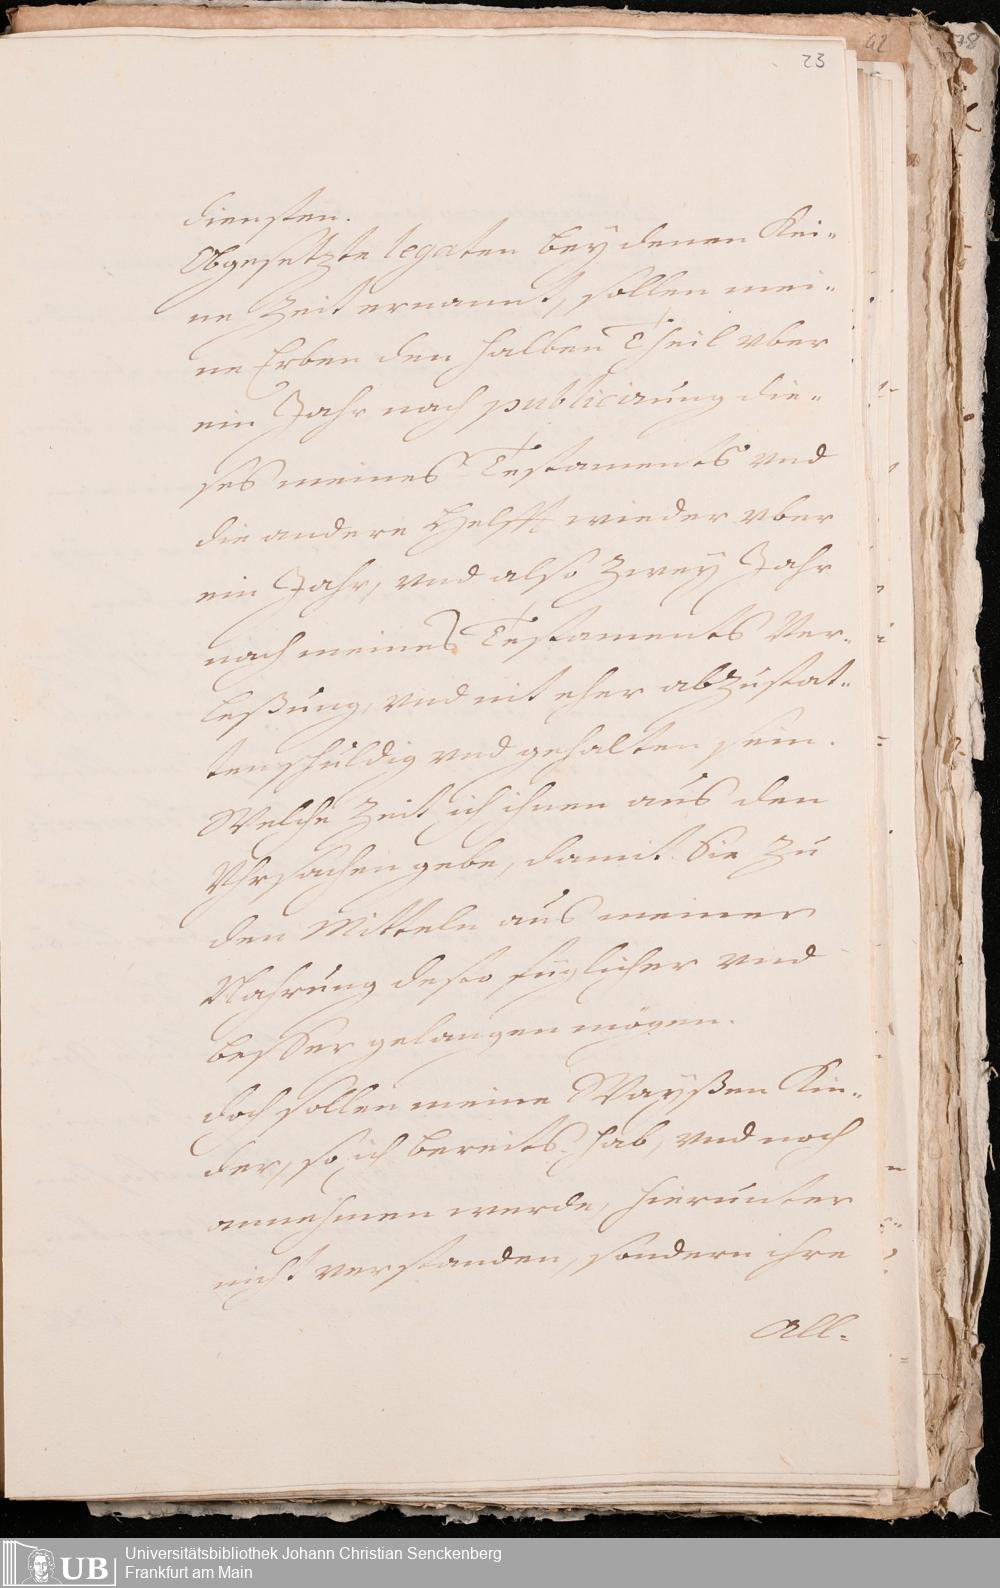 23
42
78
diensten.
Obgesetzte legaten bey denen Kei-
ne Zeit ernannt, sollen mei-
ne Erben den halben Theil vber
ein Jahr nach publicirung die-
ses meines Testaments vnd
die andere Helfft wieder vber
ein Jahr, vnd also zwey Jahr
nach meines Testaments Ver-
leßung, vnd nit eher abzustat-
ten schuldig vnd gehalten sein.
Welche Zeit ich ihnen aus den
Vhrsachen gebe, damit Sie zu
den Mitteln aus meiner
Nahrung desto füglicher vnd
besser gelangen mögen.
doch sollen meine Wayßen Kin-
der, so ich bereits hab, vnd noch
annehmen werde, hierunter
nicht verstanden, sondern ihre
All-
UB
Universitätsbibliothek Johann Christian Senckenberg
Frankfurt am Main